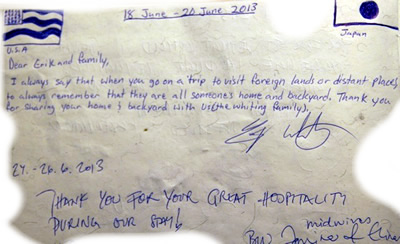 18 June - 20 June 2013
U.S.A
Japan
Dear Erik and family,
I always say that when you go on a trip to visit foreign lands or distant places
to always remember that they are all someone's home and backyard. Thank you
for sharing your home & backyard with us (the Whiting Family).
24.-26.6.2013
THANK YOU FOR YOUR GREAT HOSPITALITY
DURING OUR STAY!
midwives